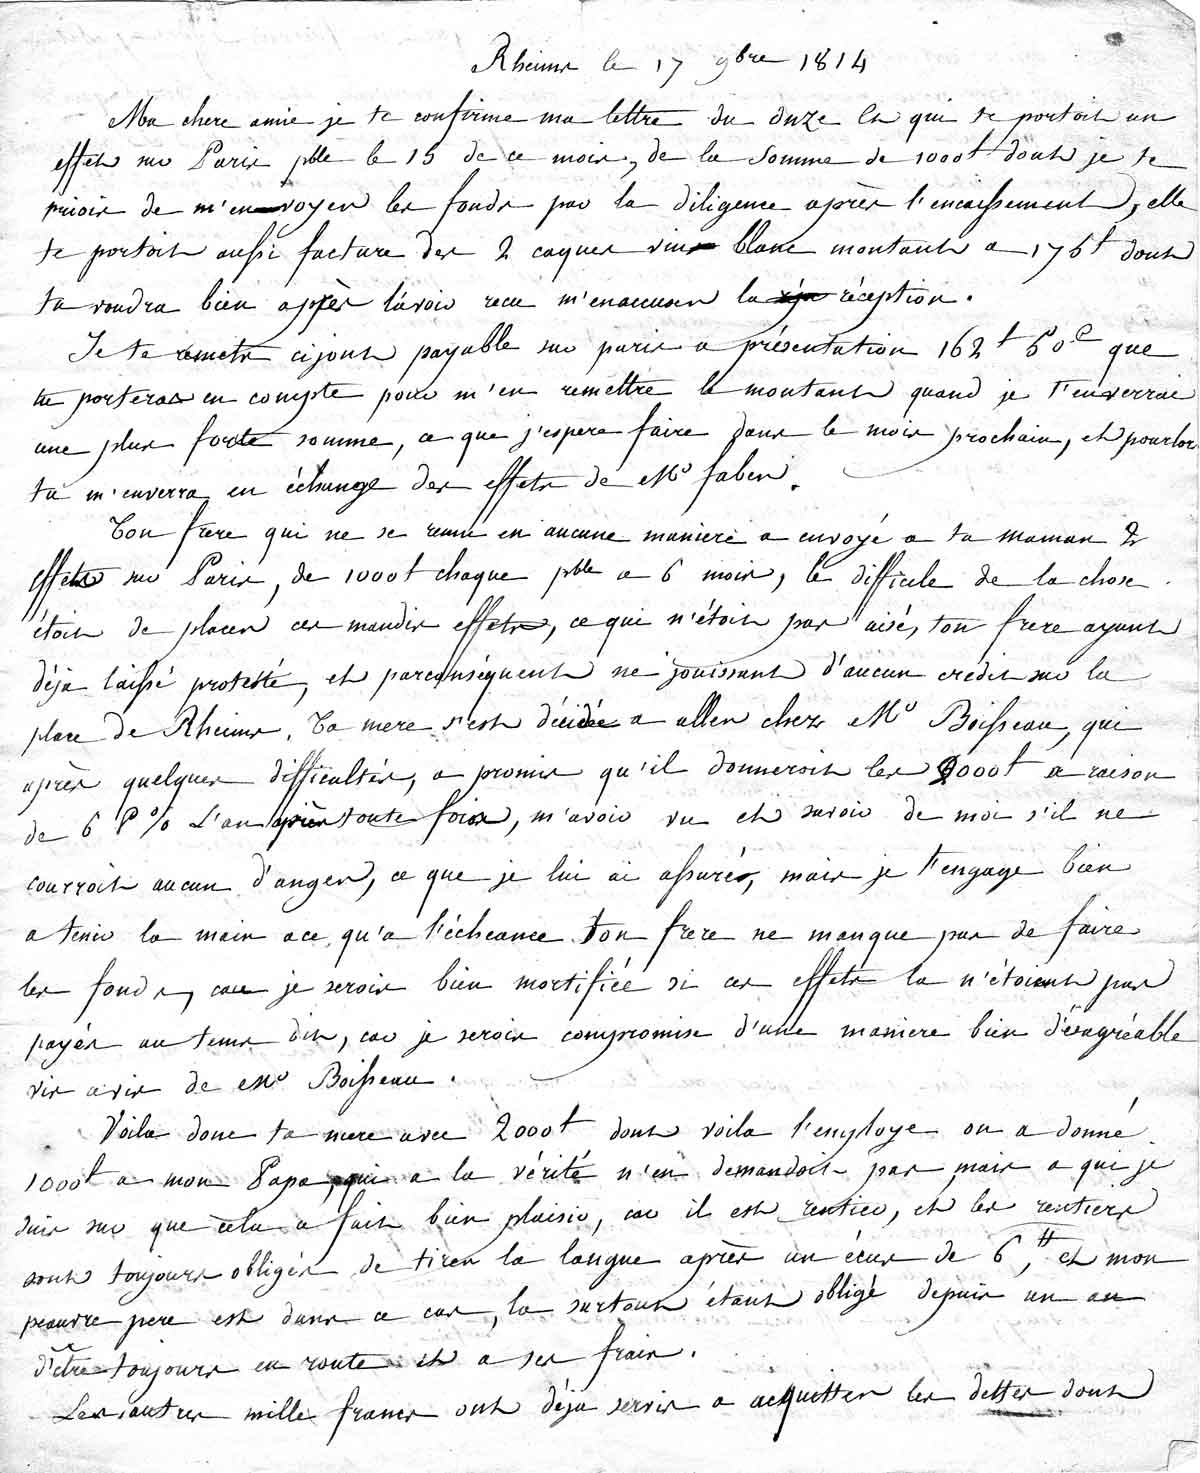 Rheims le 17 9bre 1814
Ma chere amie je te confirme ma lettre du onze Ct qui te portoit un
effet sur Paris pble le 15 de ce mois, de la somme de 1000t dont je te
priois de m'envoyer les fonds par la diligence après l'encaissement, elle
te portoit aussi facture des 2 caques vin blanc montant a 175t dont
tu voudra bien après l'avoir recu m'enaccuser la réception.
Je te remets cijoint payable sur paris a présentation 162t 50c que
tu porteras en compte pour m'en remettre le montant quand je t'enverrai
une plus forte somme, ce que j'espere faire dans le mois prochain, et pourlors
tu m'enverra en échange des effets de Mr faber.
Ton frere qui ne se remue en aucune maniere a envoyé a ta maman 2
effets sur Paris, de 1000t chaque pble a 6 mois, le difficile de la chose
étoit de placer ces maudis effets, ce qui n'étoit pas aisé, ton frere ayant
déja laissé protesté, et parconséquent ne jouissant d'aucun crédit sur la
place de Rheims. Ta mere s'est décidée a aller chez Mr Boisseau, qui
après quelques difficultés, a promis qu'il donneroit les 2000t a raison
de 6 P % L'an après toute fois, m'avoir vu et savoir de moi s'il ne
courroit aucun d'anger, ce que je lui ai assuré, mais je t'engage bien
a tenir la main ace qu'a l'écheance ton frere ne manque pas de faire
les fonds, car je serois bien mortifiée si ces effets la n'étoient pas
payés au tems dit, car je serois compromise d'une maniere bien désagréable
vis avis de Mr Boisseau.
Voila donc ta mere avec 2000t dont voila l'employe on a donné
1000t a mon Papa, qui a la vérité n'en demandoit pas, mais a qui je
suis sur que cela a fait bien plaisir, car il est rentier, et les rentiers
sont toujours obligés de tirer la langue après un écus de 6tt, et mon
peauvre pere est dans ce cas, la surtout étant obligé depuis un an
d'être toujours en route et a ses frais.
Les autres mille francs ont déja servis a acquitter les dettes dont